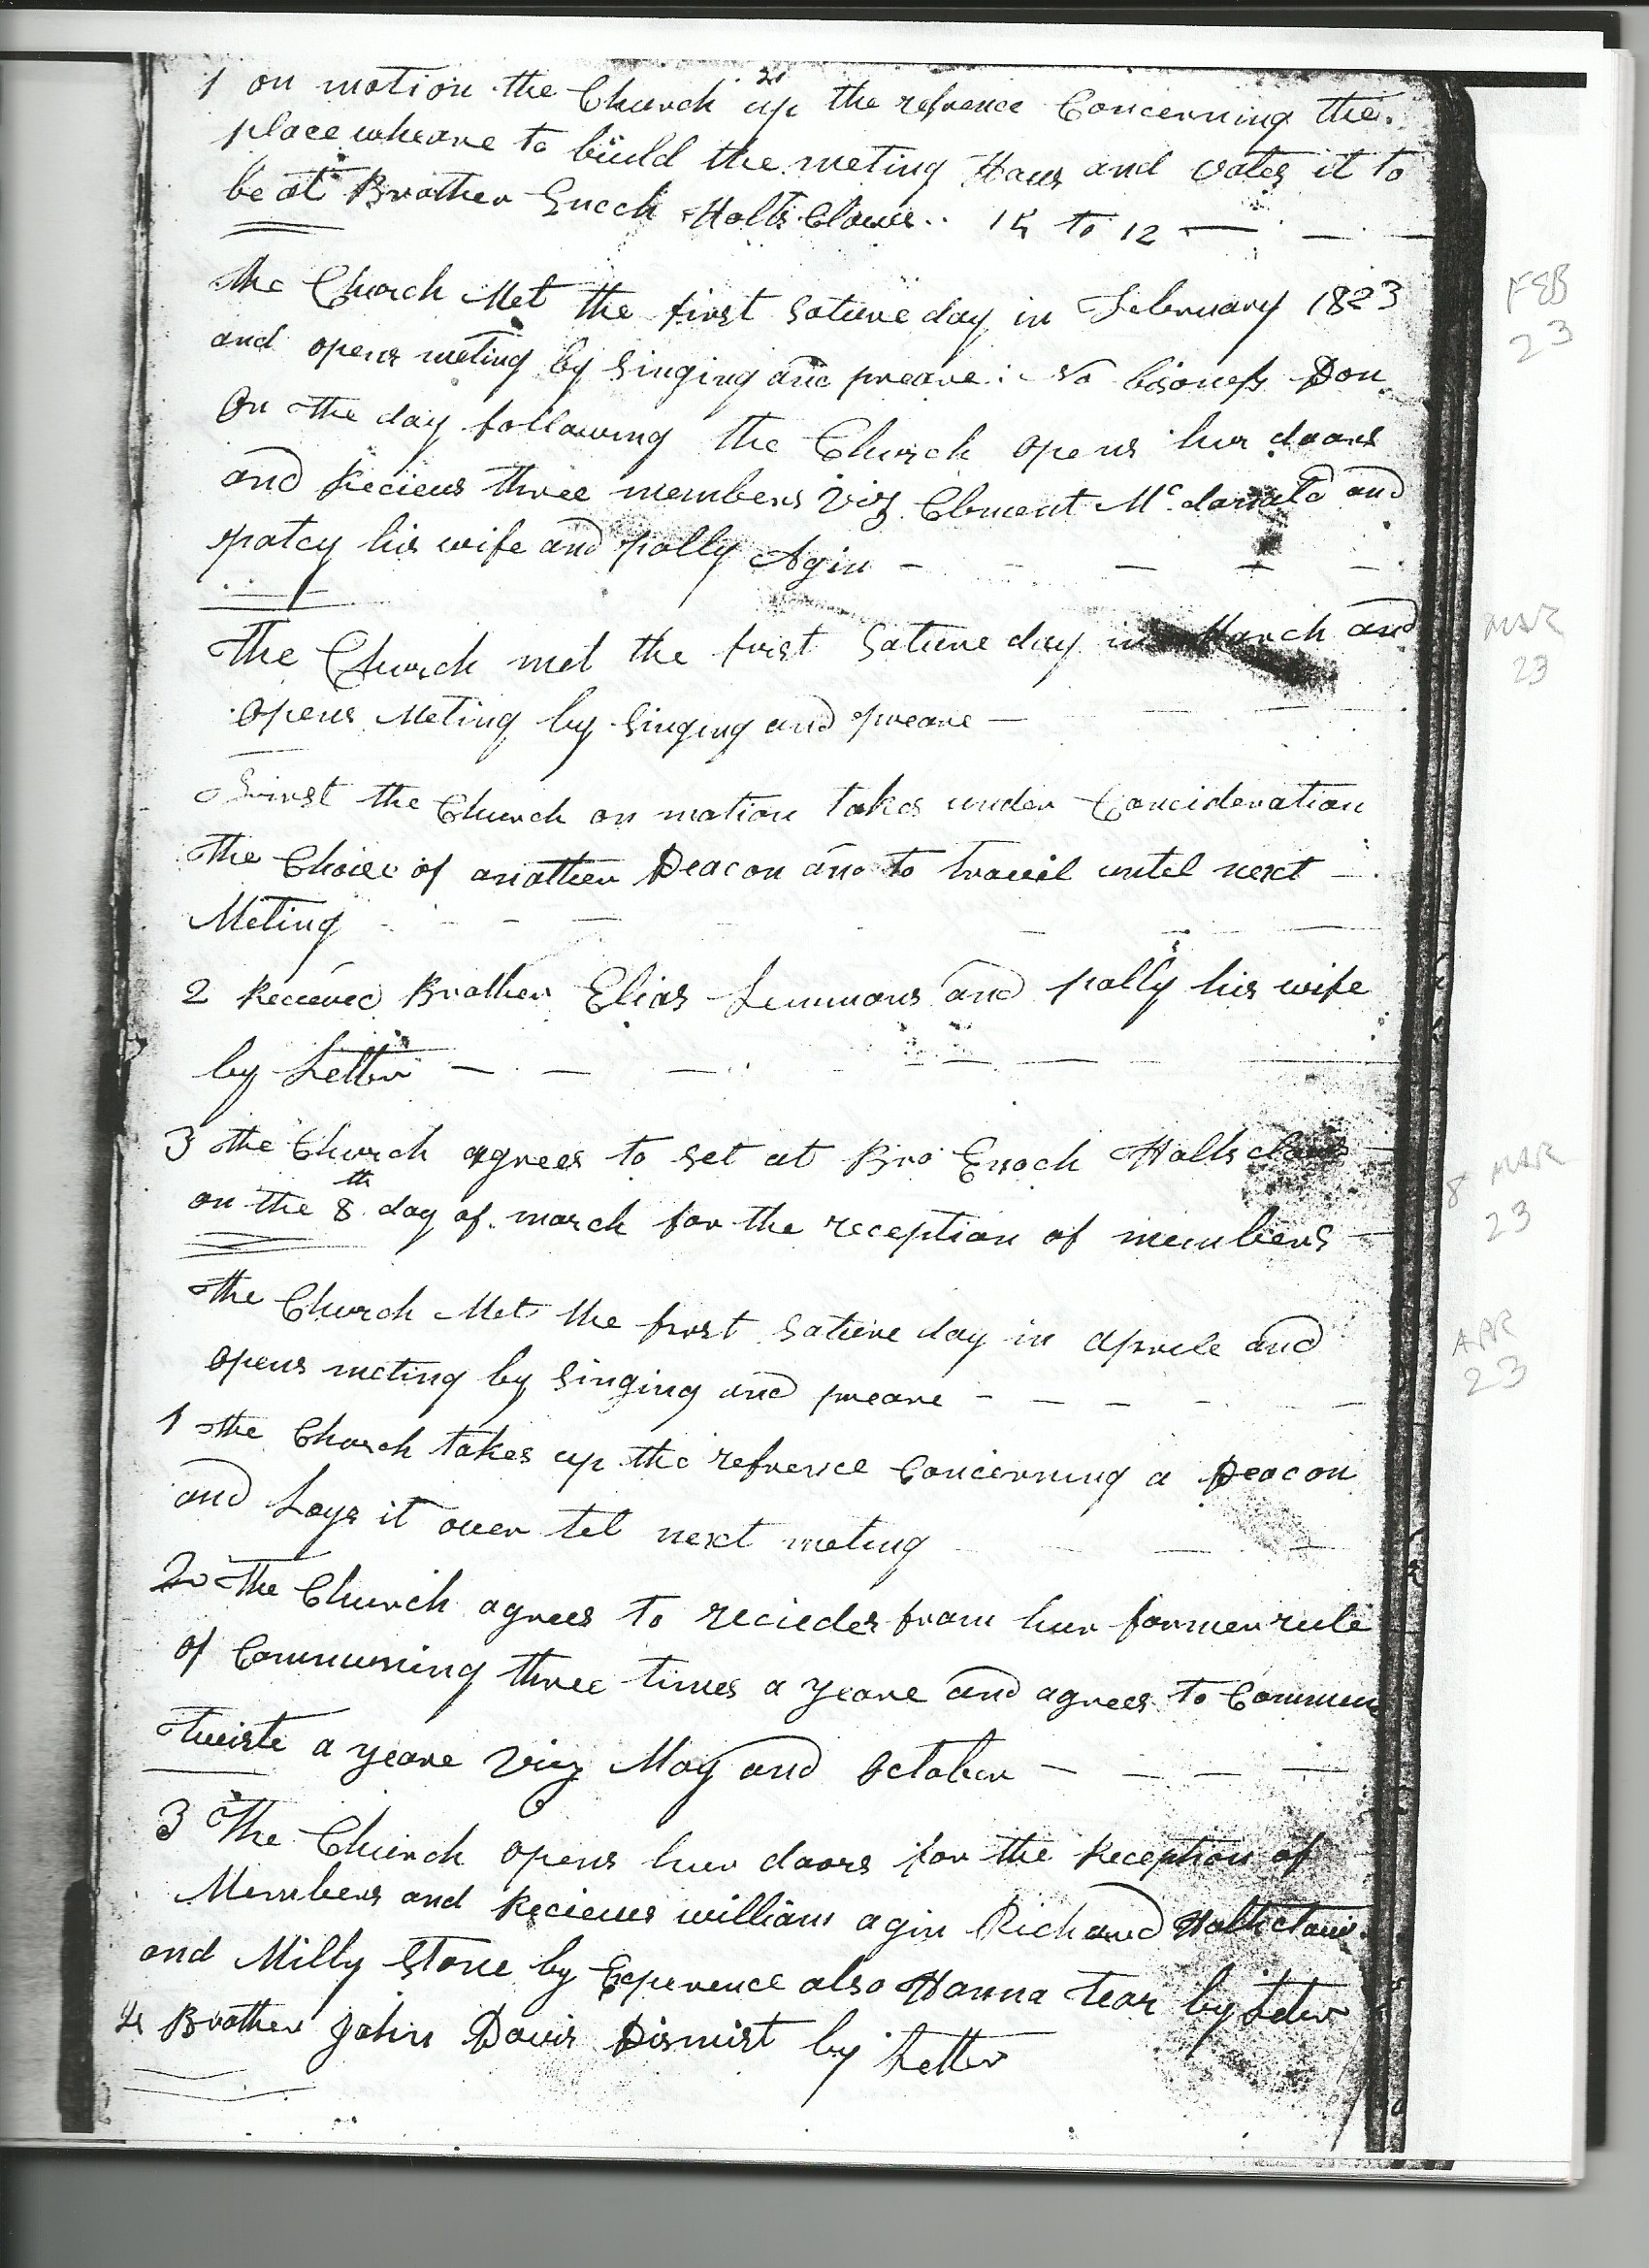 1 on motion the Church up the refrence Concerning the
place wheare to build the meting Haus and votes it to
be at Brother Enoch Holts Claws.. 14 to 12
the Church Met the first Satureday in February 1823
FEB
23
and opens meting by Singing and preare: No bisoness Don
On the day following the Church opens hur doars
and Recieus three members Viz Clement Mc.donald and
patcy his wife and polly Agin
The Church met the first Satureday in March and
MAR
23
opens Meting by Singing and preare
First the Church on motion takes under Concideration
the Choice of another Deacon and to traviel untel next
Meting
2 Recieved Brother Elias Lemmons and polly his wife
by Letter
3 the Church agrees to set at Bro Enoch Holtsclaws
8 MAR
23
on the 8th day of march for the reception of members
the Church Met the first Satureday in Aprile and
APR
23
opens meting by Singing and preare
1 the Church takes up the refrence Concerning a Deacon
and Lays it over tel next meting
2 The Church agrees to recieder from hur former rule
of Communing three times a yeare and agrees to Commun
twiste a yeare Viz May and October
3 The Church opens hur doors for the Reception of
Members and Recieves william agin Richard Holtsclaw
and Milly Stone by Experence also Hanna tear by Letter
4 Brother John Davis Dismist by Letter